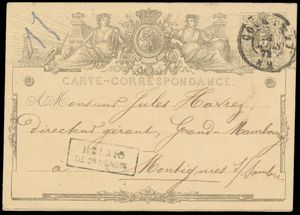 CARTE-CORRESPONDANCE.
A Monsieur Jules Havrez
Directeur gérant, Grand-Mambourg
RELAIS
à Montignies s/Sambre